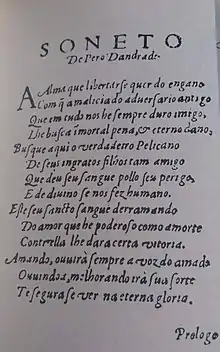 SONETO
De Pero Dandrade.
Alma que libertarse quer do engano
Com q̃ a malicia do aduersario antigo
Que em tudo nos he sempre duro imigo,
Lhe busca imortal pena, & eterno dano,
Busque aqui o verdadeiro Pelicano
De seus ingratos filhos tam amigo
Que deu seu sangue pollo seu perigo,
E de diuino se nos fez humano.
Este seu sancto sangue derramando
Do amor que he poderoso como a morte
Contrella lhe dara certa vitoria.
Amando, ouuirá sempre a voz do amado
Ouuindoa, melhorando irá sua sorte
Te segura se ver na eterna gloria.
Prologo